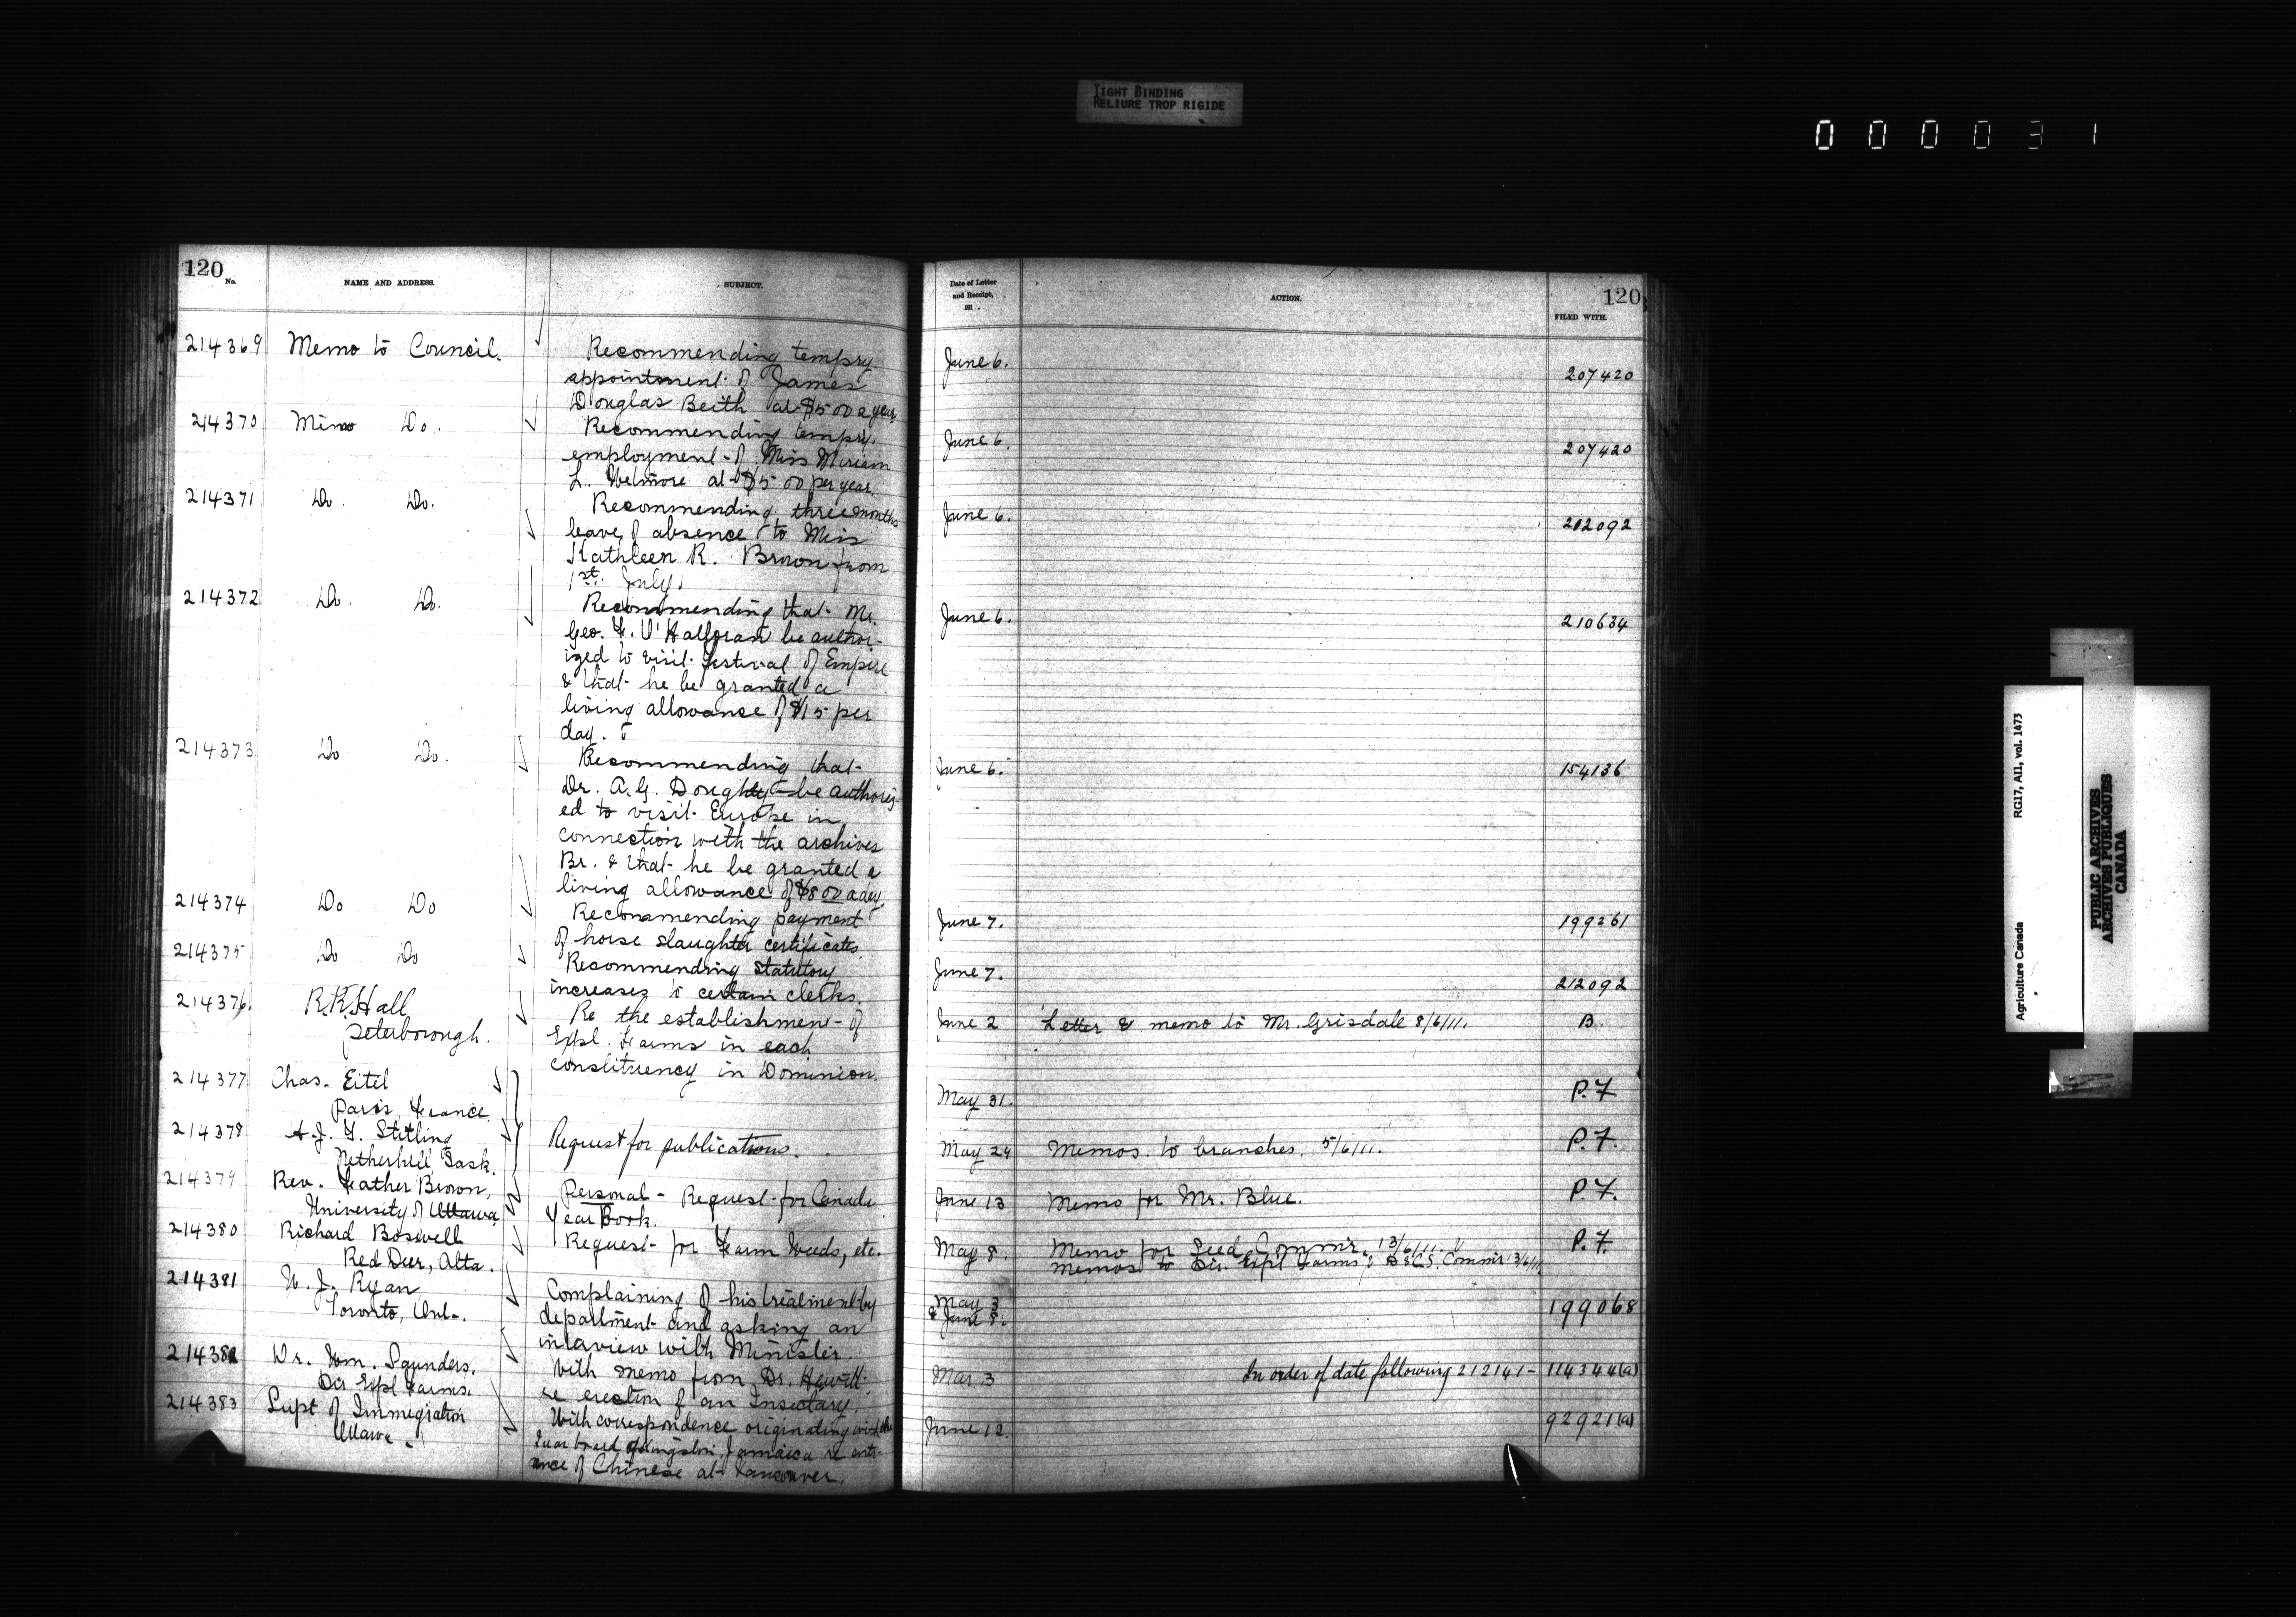 TIGHT BINDING
RELIURE TROP RIGIDE
0 0 0 0 3 1
120
No.
NAME AND ADDRESS.
SUBJECT.
214369 Memo to Council.
Recommending tempry
appointment of James
Douglas Beith at $500 a year
214370 Memo Do.
Recommending tempry.
employment of Miss Miriam
L. Wetmore at $500 per year.
214371 Do. Do.
Recommending three months
leave of absence to Miss
Kathleen R. Brown from
1st. July.
214372 Do. Do.
Recommending that Mr.
Geo. F. O'Halloran be author-
ized to visit Festival of Empire
& that he be granted a
living allowance of $15 per
day.
214373 Do Do.
Recommending that
Dr. A.G. Doughty be authoriz-
ed to visit Europe in
connection with the archives
Br. & that he be granted a
living allowance of $8 00 a day.
214374 Do Do
Recommending payment
of horse slaughter certificates.
214375 Do Do
Recommending statutory
increases to certain clerks.
214376. R.R. Hall
Peterborough.
Re the establishment of
Expl. Farms in each
constituency in Dominion.
214377 Chas. Eitel
Paris, France.
214378 A.J. G. Stitling
Netherhill Sask.
Request for publications.
214379 Rev. Father Brown,
University of Ottawa
Personal - Request for Canada
Year Book.
214380 Richard Boswell
Red Deer, Alta.
Request for Farm Weeds, etc.
214381 W. J. Ryan
Toronto, Ont.
Complaining of his treatment by
department and asking an
interview with Minister.
214382 Dr. Wm. Saunders.
Dir Expl Farms.
With memo from Dr. Hewitt
re erection of an Insectary.
214383 Supt of Immigration
Ottawa.
With correspondence originating with
Kingston, Jamaica re entr-
ance of Chinese at Vancouver.
Date of Letter
and Receipt,
191 .
ACTION.
120
FILED WITH.
June 6. 207420
June 6. 207420
June 6. 212092
June 6. 210634
June 6. 154136
June 7. 199261
June 7. 212092
June 2 Letter & memo to Mr. Grisdale 8/6/11. B.
May 31. P.F
May 24 Memos. to branches. 5/6/11. P.F.
June 13 Memo for Mr. Blue. P.F.
May 8. Memo for Seed Commr. 13/6/11. P.F.
Memos to Dir. Expl Farms & D&C.S. Commr 13/6/11
May 3
& June 8. 199068
Mar 3 In order of date following 212141 - 114344(a)
June 12. 92921(a)
Agriculture Canada RG17, AII, vol. 1473
PUBLIC ARCHIVES
ARCHIVES PUBLIQUES
CANADA